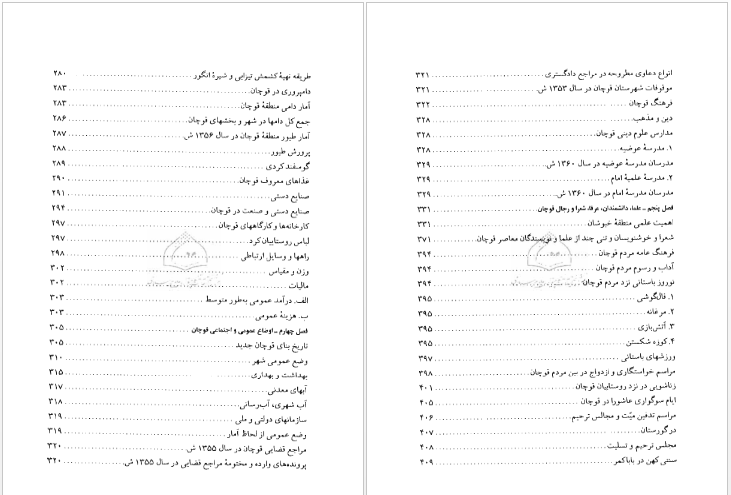 طریقه تهیهٔ کشمش تیزابی و شیرهٔ انگور ۲۸۰
دامپروری در قوچان ۲۸۳
آمار دامی منطقهٔ قوچان ۲۸۳
جمع کل دامها در شهر و بخشهای قوچان ۲۸۶
آمار طیور منطقهٔ قوچان در سال ۱۳۵۶ ش ۲۸۷
پرورش طیور ۲۸۸
گوسفند کردی ۲۸۹
غذاهای معروف قوچان ۲۹۰
صنایع دستی ۲۹۱
صنایع دستی و صنعت در قوچان ۲۹۴
کارخانه‌ها و کارگاههای قوچان ۲۹۷
لباس روستاییان کرد ۲۹۷
راهها و وسایل ارتباطی ۲۹۸
وزن و مقیاس ۳۰۲
مالیات ۳۰۲
الف. درآمد عمومی به‌طور متوسط ۳۰۳
ب. هزینهٔ عمومی ۳۰۳
فصل چهارم ـ اوضاع عمومی و اجتماعی قوچان ۳۰۵
تاریخ بنای قوچان جدید ۳۰۵
وضع عمومی شهر ۳۱۰
بهداشت و بهداری ۳۱۵
آبهای معدنی ۳۱۷
آب شهری، آب‌رسانی ۳۱۸
سازمانهای دولتی و ملی ۳۱۹
وضع عمومی از لحاظ آمار ۳۱۹
مراجع قضایی قوچان در سال ۱۳۵۵ ش ۳۲۰
پرونده‌های وارده و مختومهٔ مراجع قضایی در سال ۱۳۵۵ ش ۳۲۰
انواع دعاوی مطروحه در مراجع دادگستری ۳۲۱
موقوفات شهرستان قوچان در سال ۱۳۵۳ ش ۳۲۱
فرهنگ قوچان ۳۲۲
دین و مذهب ۳۲۸
مدارس علوم دینی قوچان ۳۲۸
۱. مدرسهٔ عوضیه ۳۲۸
مدرسان مدرسهٔ عوضیه در سال ۱۳۶۰ ش ۳۲۹
۲. مدرسهٔ علمیهٔ امام ۳۲۹
مدرسان مدرسهٔ امام در سال ۱۳۶۰ ش ۳۲۹
فصل پنجم ـ علما، دانشمندان، عرفا، شعرا و رجال قوچان ۳۳۱
اهمیت علمی منطقهٔ خبوشان ۳۳۱
شعرا و خوشنویسان و تنی چند از علما و نویسندگان معاصر قوچان ۳۷۱
فرهنگ عامه مردم قوچان ۳۹۴
آداب و رسوم مردم قوچان ۳۹۴
نوروز باستانی نزد مردم قوچان ۳۹۴
۱. فال‌گوشی ۳۹۵
۲. مرغانه ۳۹۵
۳. آتش‌بازی ۳۹۵
۴. کوزه شکستن ۳۹۵
ورزشهای باستانی ۳۹۷
مراسم خواستگاری و ازدواج در بین مردم قوچان ۳۹۸
زناشویی در نزد روستاییان قوچان ۴۰۱
ایام سوگواری عاشورا در قوچان ۴۰۵
مراسم تدفین میّت و مجالس ترحیم ۴۰۶
در گورستان ۴۰۷
مجلس ترحیم و تسلیت ۴۰۸
سنتی کهن در باباکمر ۴۰۹